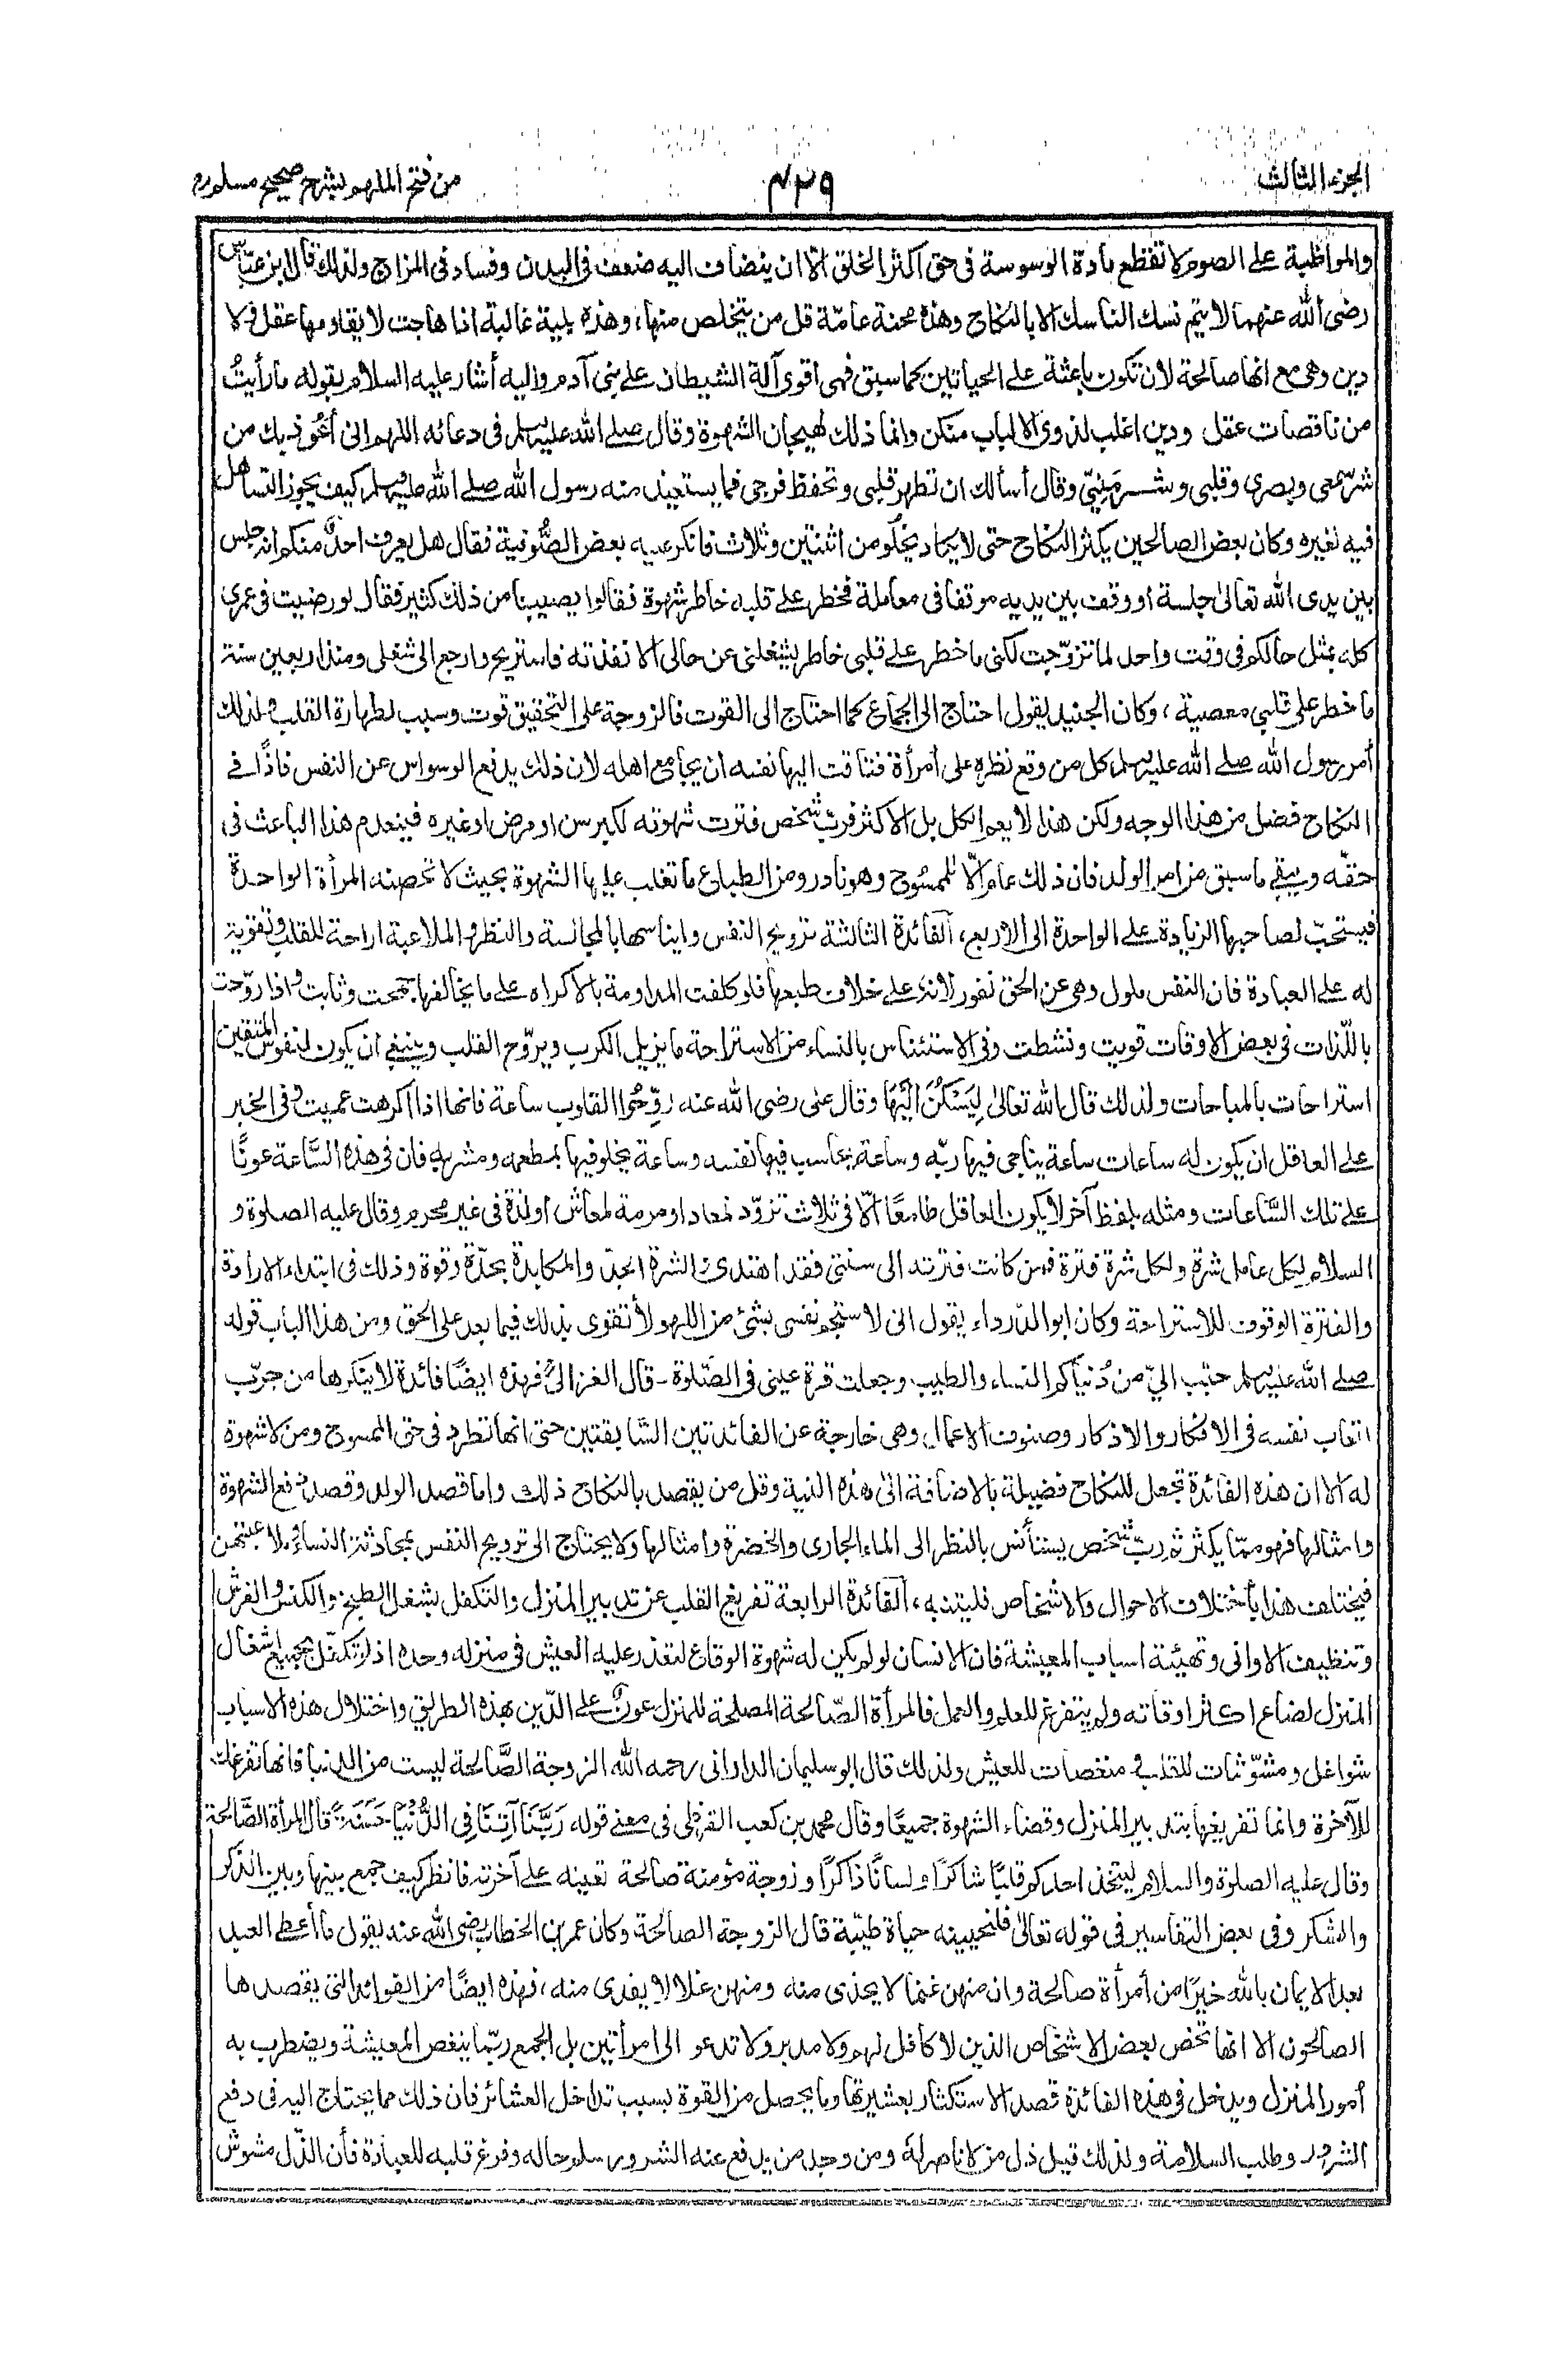 الجزء الثالث
٤٢٩
من فتح الملهم بشرح صحيح مسلم
والمواظبة على الصوم لا تقطع مادة الوسوسة في حق اكثر الخلق الا ان ينضاف اليه ضعف في البدن وفساد في المزاج ولذلك قال ابن عباس
رضى الله عنهما لا يتم نسك الناسك الا بالنكاح وهذه محنة عامّة قل من يتخلص منها، وهذه بلية غالبة اذا هاجت لا يقاومها عقل ولا
دين وهى مع انها صالحة لان تكون باعثة على الحياتين كما سبق فهى اقوى آلة الشيطان على بنى آدم واليه أشار عليه السلام بقوله ما رأيتُ
من ناقصات عقل ودين اغلب لذوى الالباب منكن وانما ذلك لهيجان الشهوة وقال صلى الله عليه وسلم في دعائه اللهم انى أعوذ بك من
شر سمعى وبصرى وقلبى وشر مَنِيّي وقال أسألك ان تطهر قلبى وتحفظ فرجى فما يستعيذ منه رسول الله صلى الله عليه وسلم كيف يجوز التساهل
فيه لغيره وكان بعض الصالحين يكثر النكاح حتى لا يكاد يخلو من اثنتين وثلاث فانكر عليه بعض الصُّوفية فقال هل يعرف احدٌ منكم انه جلس
بين يدى الله تعالى جلسة او وقف بين يديه موقفا في معاملة فخطر على قلبه خاطر شهوة فقالوا يصيبنا من ذلك كثير فقال لو رضيت في عمرى
كله بمثل حالكم في وقت واحد لما تزوّجت لكنى ما خطر على قلبى خاطر يشغلنى عن حالى الا نفذته فاستريح وارجع الى شغلى ومنذ اربعين سنة
ما خطر على قلبى معصية، وكان الجنيد يقول احتاج الى الجماع كما احتاج الى القوت فالزوجة على التحقيق قوت وسبب لطهارة القلب ولذلك
أمر رسول الله صلى الله عليه وسلم كل من وقع نظره على أمرأة فتاقت اليها نفسه ان يجامع اهله لان ذلك يدفع الوسواس عن النفس فاذًا في
النكاح فضل من هذا الوجه ولكن هذا لا يعم الكل بل الاكثر فربّ شخص فترت شهوته لكبر سن او مرض او غيره فينعدم هذا الباعث في
حقّه ويبقى ما سبق من امر الولد فان ذلك عام الّا للممسُوح وهو نادر ومن الطباع ما تغلب عليها الشهوة بحيث لا تحصنه المرأة الواحدة
فيستحبّ لصاحبها الزيادة على الواحدة الى الاربع، الفائدة الثالثة ترويح النفس وايناسها بالمجالسة والنظر والملاعبة اراحة للقلب وتقوية
له على العبادة فان النفس ملول وهى عن الحق نفور لانه على خلاف طبعها فلو كلفت المداومة بالاكراه على ما يخالفها جمحت وثابت واذا روّحت
باللّذات في بعض الاوقات قويت ونشطت وفى الاستئناس بالنساء من الاستراحة ما يزيل الكرب ويروّح القلب وينبغى ان يكون لنفوس المتقين
استراحات بالمباحات ولذلك قال الله تعالى لِيَسْكُنَ اِلَيْهَا وقال على رضى الله عنه روِّحُوا القلوب ساعة فانها اذا اكرهت عميت وفى الخبر
على العاقل ان يكون له ساعات ساعة يناجى فيها ربّه وساعة يحاسب فيها نفسه وساعة يخلو فيها بمطعمه ومشربه فان في هذه السَّاعة عونًا
على تلك السَّاعات ومثله بلفظ آخر لا يكون العاقل طامعًا الّا فى ثلاث تزوّد لمعاد او مرمة لمعاش او لذة في غير محرم وقال عليه الصلوة و
السلام لكل عامل شرة ولكل شرة فترة فمن كانت فترته الى سنتى فقد اهتدى والشرة الجدّ والمكابدة بحدّة وقوة وذلك في ابتداء الارادة
والفترة الوقوف للاستراحة وكان ابو الدّرداء يقول انى لاستجم نفسى بشئ من اللهو لأتقوى بذلك فيما بعد على الحق ومن هذا الباب قوله
صلى الله عليه وسلم حبّب الىّ من دُنياكم النساء والطيب وجعلت قرة عينى فى الصّلوة - قال الغزالىؒ فهذه ايضًا فائدة لا ينكرها من جرّب
اتعاب نفسه فى الافكار والاذكار وصنوف الاعمال وهى خارجة عن الفائدتين السَّابقتين حتى انها تطرد فى حق الممسوح ومن لا شهوة
له الا ان هذه الفائدة تجعل للنكاح فضيلة بالاضافة الى هذه النية وقل من يقصد بالنكاح ذلك واما قصد الولد وقصد دفع الشهوة
وامثالها فهو ممّا يكثر ثم ربّ شخص يستأنس بالنظر الى الماء الجارى والخضرة وامثالها ولا يحتاج الى ترويح النفس بمحادثة النساء وملاعبتهن
فيختلف هذا بأختلاف الاحوال والاشخاص فليتنبه، الفائدة الرابعة تفريغ القلب عن تدبير المنزل والتكفل بشغل الطبخ والكنس والفرش
وتنظيف الاوانى وتهيئة اسباب المعيشة فان الانسان لو لم يكن له شهوة الوقاع لتعذر عليه العيش فى منزله وحده اذ لو تكفّل بجميع اشغال
المنزل لضاع اكثر اوقاته ولم يتفرغ للعلم والعمل فالمرأة الصّالحة المصلحة للمنزل عونٌ على الدّين بهذه الطريق واختلال هذه الاسباب
شواغل ومشوّشات للقلب و منغصات للعيش ولذلك قال ابو سليمان الدارانى رحمه الله الزوجة الصَّالحة ليست من الدنيا فانها تفرغك
للآخرة وانما تفريغها بتدبير المنزل وقضاء الشهوة جميعًا وقال محمد بن كعب القرظى في معنى قوله رَبَّنَا آتِنَا فِى الدُّنْيَا حَسَنَةً قال المرأة الصّالحة
وقال عليه الصلوة والسلام ليتخذ احدكم قلبًا شاكرًا ولسانًا ذاكرًا وزوجة مؤمنة صالحة تعينه على آخرته فانظر كيف جمع بينها وبين الذكر
والشكر وفى بعض التفاسير فى قوله تعالى فلنحيينه حياة طيّبة قال الزوجة الصالحة وكان عمر بن الخطاب رضى الله عنه يقول ما أعطى العبد
بعد الايمان بالله خيرًا من أمرأة صالحة وان منهن غنما لا يحذى منه ومنهن غلا لا يفدى منه، فهذه ايضًا من الفوائد التى يقصدها
الصالحون الا انها تخص بعض الاشخاص الذين لا كافل لهم ولا مدبر ولا تدعو الى امرأتين بل الجمع ربّما ينغص المعيشة ويضطرب به
أمور المنزل ويدخل فى هذه الفائدة قصد الاستكثار بعشيرتها وما يحصل من القوة بسبب تداخل العشائر فان ذلك مما يحتاج اليه فى دفع
الشرور وطلب السلامة ولذلك قيل ذل من لا ناصر له ومن وجد من يدفع عنه الشرور سلم حاله وفرغ قلبه للعبادة فأن الذّل مشوش